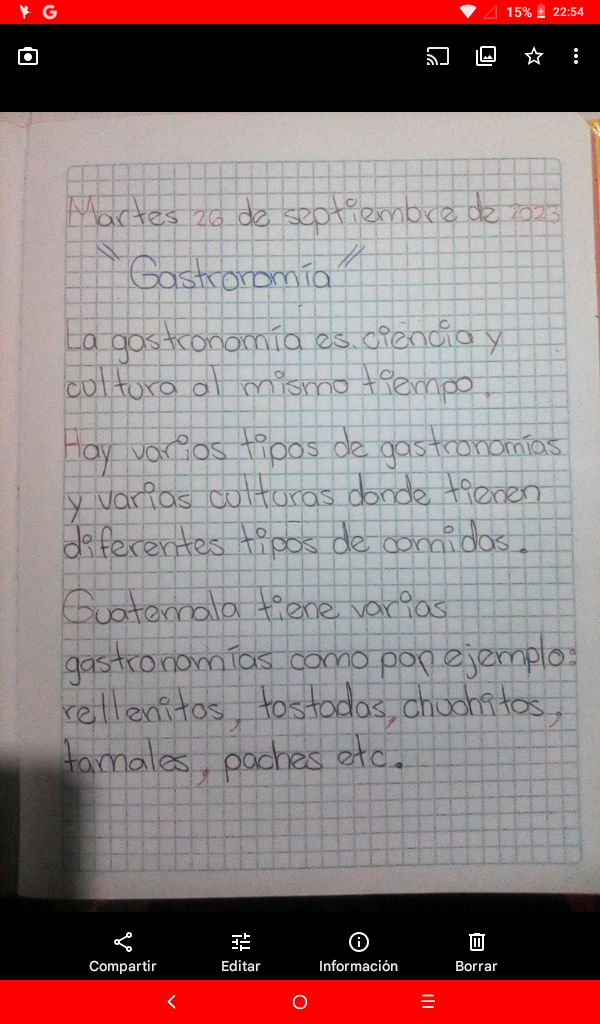 15% 22:54
Martes 26 de septiembre de 2023
"Gastronomía"
La gastronomía es ciencia y
cultura al mismo tiempo.
Hay varios tipos de gastronomías
y varias culturas donde tienen
diferentes tipos de comidas.
Guatemala tiene varias
gastronomías como por ejemplo:
rellenitos, tostadas, chuchitos,
tamales, paches etc.
Compartir Editar Información Borrar